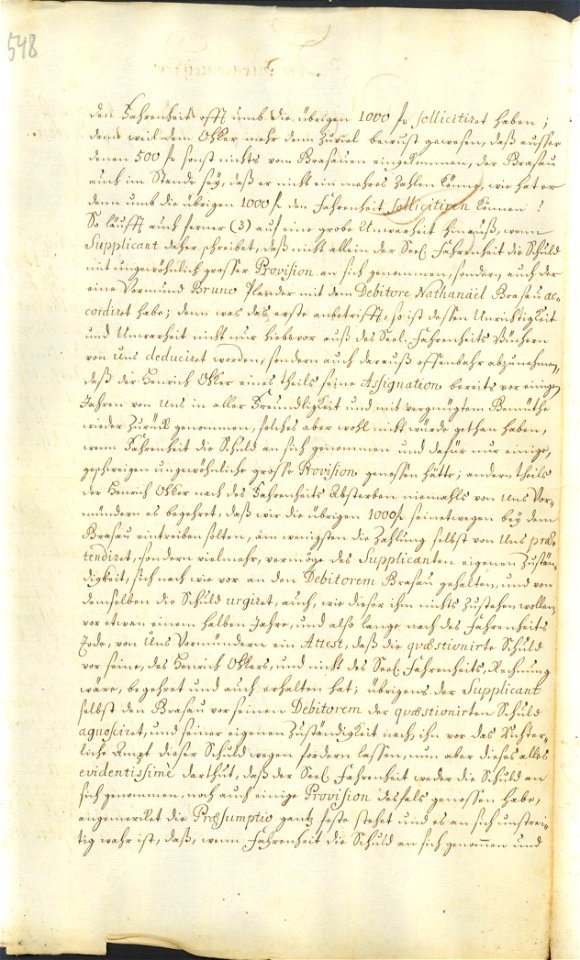 548
den Fahrenheit offt umb die übrigen 1000 fl sollicitiret haben;
denn weil dem Ohker mehr denn zuviel bewust gewesen, daß ausser
denen 500 fl sonst nichts vom Brasauen eingekommen, der Brasau
auch im Stande sey, daß er nicht ein mehres zahlen könne, wie hat er
denn umb die übrigen 1000 fl den Fahrenheit sollicitiren können!
So läufft auch ferner (3) auf eine grobe Unwarheit hinauß, wenn
Supplicant daher schreibet, daß nicht allein der Seel. Fahrenheit die Schuld
mit ungewöhnlich grosser Provision an sich genommen, sondern auch der
eine Vormund Bruno Plander mit dem Debitore Nathanaël Brasau ac-
cordiret habe; denn was das erste anbetrifft, so ist dessen Unrichtigkeit
und Unwarheit nicht nur hiebevor auß des Seel. Fahrenheits Büchern
von Uns deduciret worden, sondern auch darauß offenbahr abzunehmen,
daß der Henrich Ohker eines theils seine Assignation bereits vor einigen
Jahren von Uns in aller Freundligkeit und mit vergnügtem Gemüthe
wieder zurück genommen, solches aber wohl nicht würde gethan haben,
wenn Fahrenheit die Schuld an sich genommen und dafür nur einige,
geschweigen ungewöhnliche grosse Provision genossen hätte; andern theils
der Henrich Ohker nach des Fahrenheits Absterben niemahls von Uns Vor-
mündern es begehret, daß wir die übrigen 1000 fl seinetwegen bey dem
Brasau eintreiben solten, am wenigsten die Zahlung selbst von Uns præ-
tendiret, sondern vielmehr, vermöge des Supplicanten eigenen Zustän-
digkeit, sich nach wie vor an den Debitorem Brasau gehalten, und von
demselben die Schuld urgiret, auch, wie dieser ihm nichts zustehen wollen,
vor etwan einem halben Jahre, und also lange nach des Fahrenheits
Tode, von Uns Vormündern ein Attest, daß die quæstionirte Schuld
vor seine, des Henrich Ohkers, und nicht des Seel. Fahrenheits, Rechnung
wäre, begehret und auch erhalten hat; übrigens der Supplicant
selbst den Brasau vor seinen Debitorem der quæstionirten Schuld
agnosciret, und seiner eigenen Zuständigkeit nach, ihn vor das Richter-
liche Ampt dieser Schuld wegen fordern lassen, nun aber dieses alles
evidentissime darthut, daß der Seel. Fahrenheit weder die Schuld an
sich genommen, noch auch einige Provision desfals genossen habe,
angemercket die Præsumptio gantz feste stehet und es an sich unstrei-
tig wahr ist, daß, wenn Fahrenheit die Schuld an sich genommen und